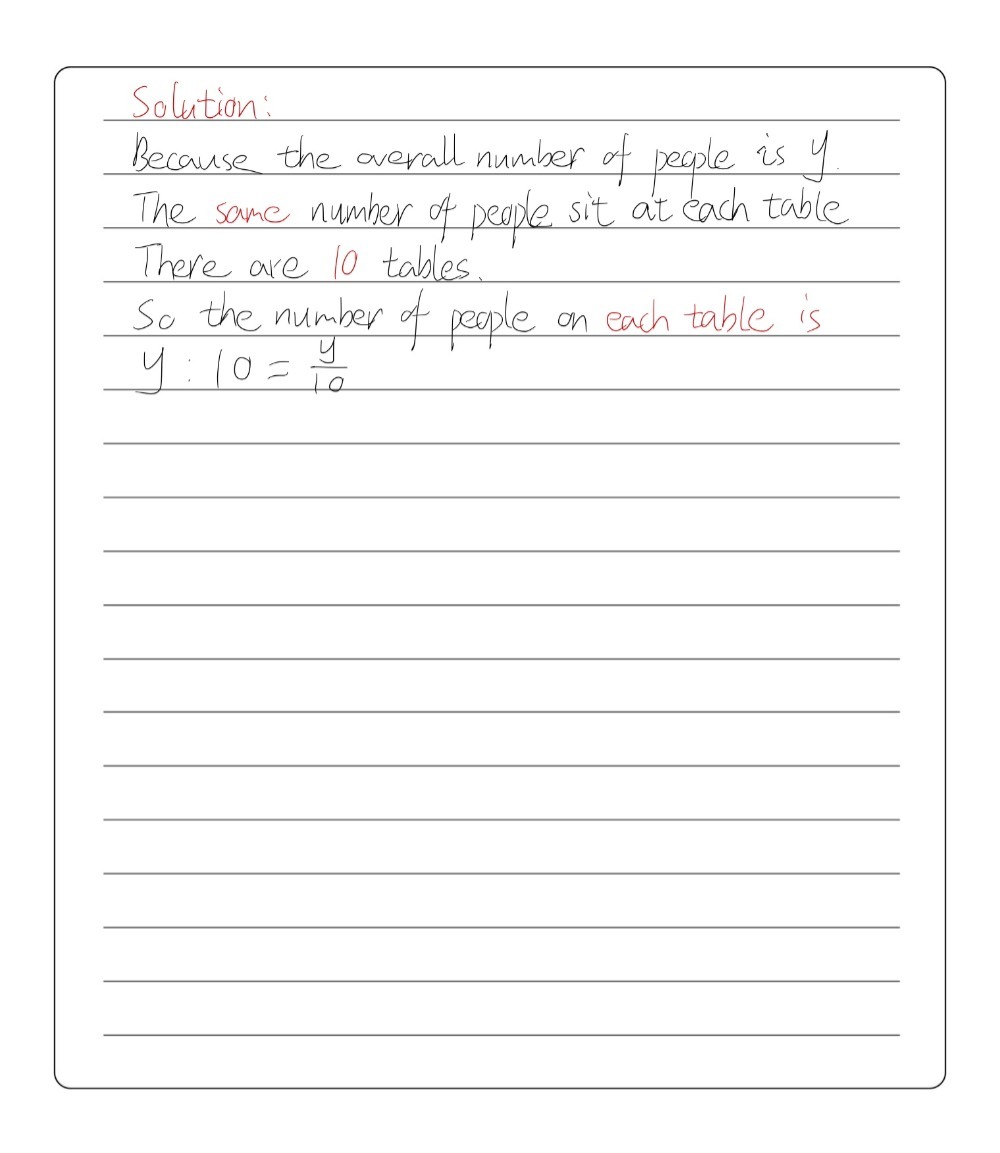 Solution:
Because the overall number of people is y.
The same number of people sit at each table
There are 10 tables.
So the number of people on each table is
y : 10 = y/10